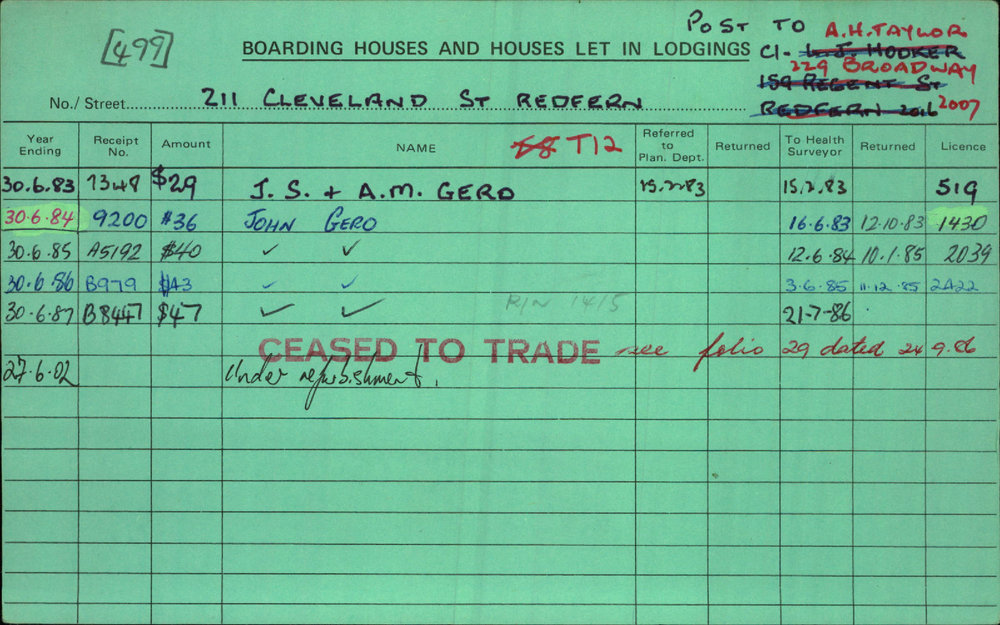 [499]
POST TO A.H. TAYLOR
BOARDING HOUSES AND HOUSES LET IN LODGINGS
C/- L. J. HOOKER
229 BROADWAY
159 REGENT ST
No./ Street 211 CLEVELAND ST REDFERN
REDFERN 2016 2007
Year Ending Receipt No. Amount NAME 58 T12 Referred to Plan. Dept. Returned To Health Surveyor Returned Licence
30.6.83 7348 $29 J. S. + A.M. GERO 15.2.83 15.2.83 519
30.6.84 9200 $36 JOHN GERO 16.6.83 12.10.83 1430
30.6.85 A5192 $40 ✓ ✓ 12.6.84 10.1.85 2039
30.6.86 B979 $43 ✓ ✓ 3.6.85 11.12.85 2A22
30.6.87 B8447 $47 ✓ ✓ R/N 1415 21-7-86
CEASED TO TRADE see folio 29 dated 24 9.86
27.6.02 Under refurbishment.